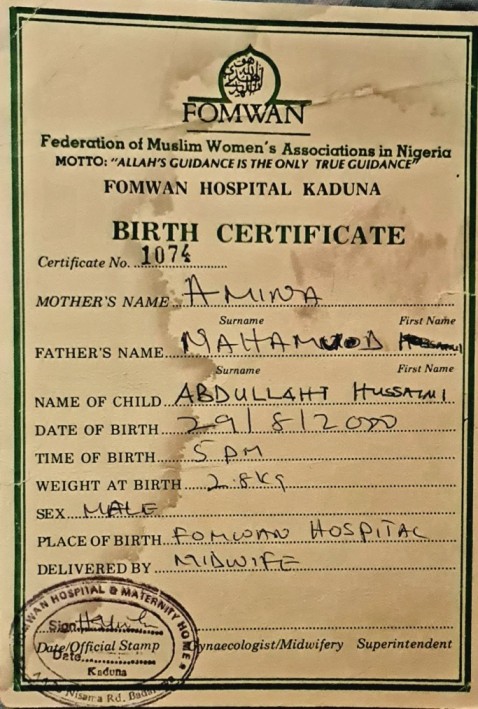 FOMWAN
Federation of Muslim Women's Associations in Nigeria
MOTTO: "ALLAH'S GUIDANCE IS THE ONLY TRUE GUIDANCE"
FOMWAN HOSPITAL KADUNA
BIRTH CERTIFICATE
Certificate No. 1074
MOTHER'S NAME AMINA
Surname First Name
FATHER'S NAME MAHAMUOD
Surname First Name
NAME OF CHILD ABDULLAHI HUSSAINI
DATE OF BIRTH 29/8/2000
TIME OF BIRTH 5 PM
WEIGHT AT BIRTH 2.8kg
SEX MALE
PLACE OF BIRTH FOMWAN HOSPITAL
DELIVERED BY MIDWIFE
HOSPITAL & MATERNITY HOME
Sign
Date/Official Stamp Gynaecologist/Midwifery Superintendent
Date
Kaduna
Rd.